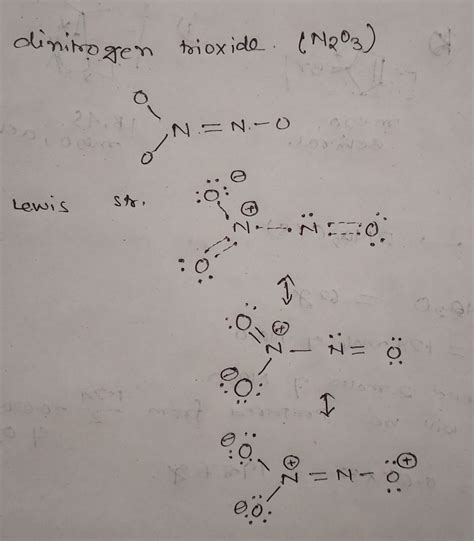 dinitrogen trioxide. (N2O3)
O
N = N - O
O
Lewis str.
:Ö: ⊖
⊕
N - N̈ = Ö:
:O
:O ⊕
N - N̈ = Ö
⊖ :O:
⊖ :O: ⊕
⊕
N = N - O:
⊖ :O: